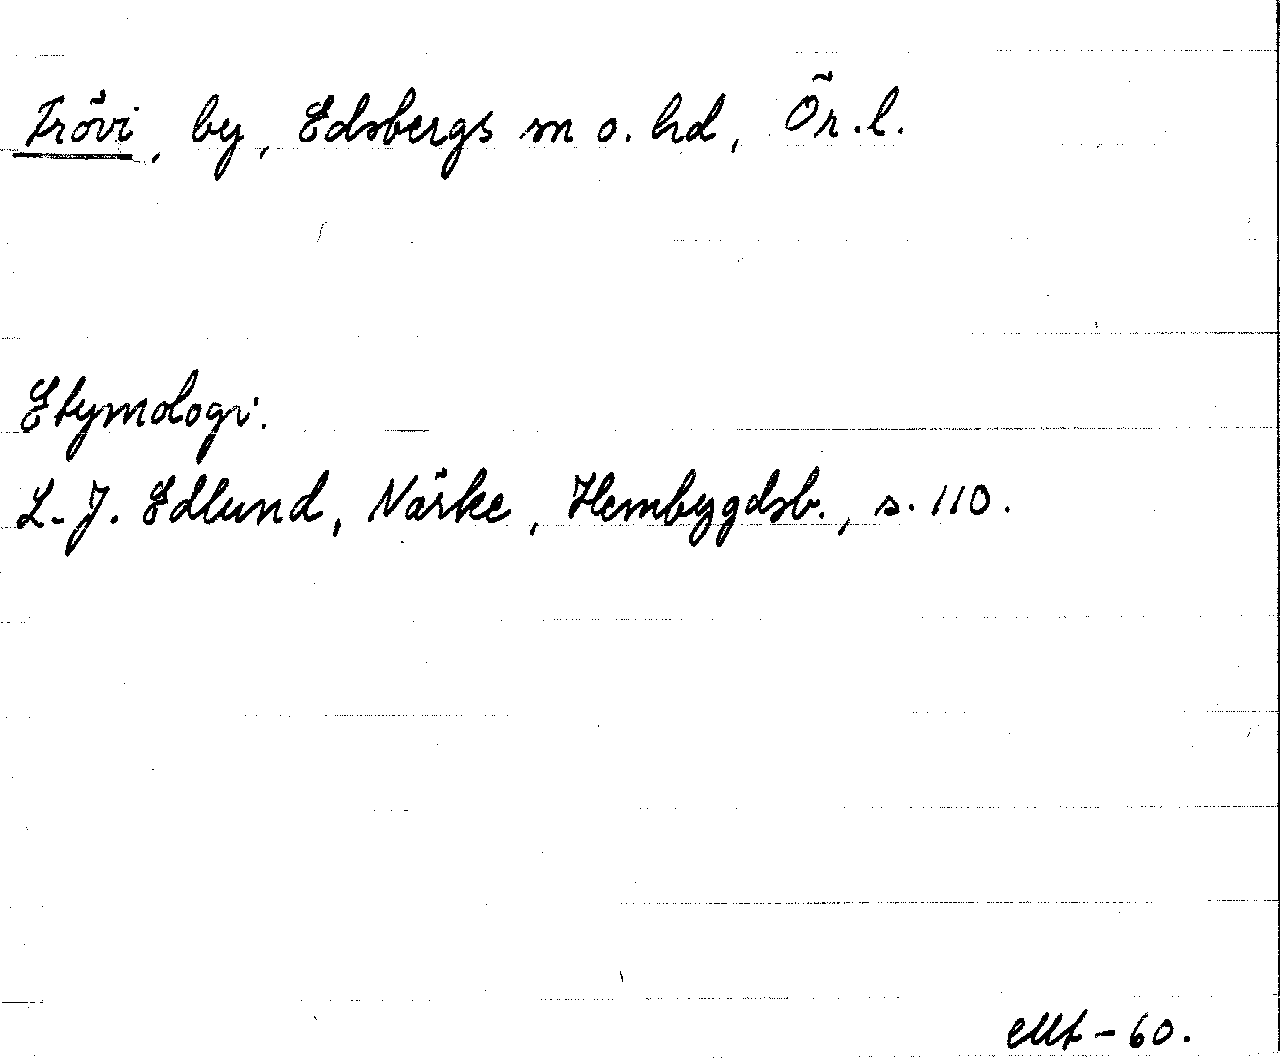 Frövi, by, Edsbergs sn o. hd, Ör. l.
Etymologi.
L-J. Edlund, Närke, Hembygdsb., s. 110.
Mt - 60.